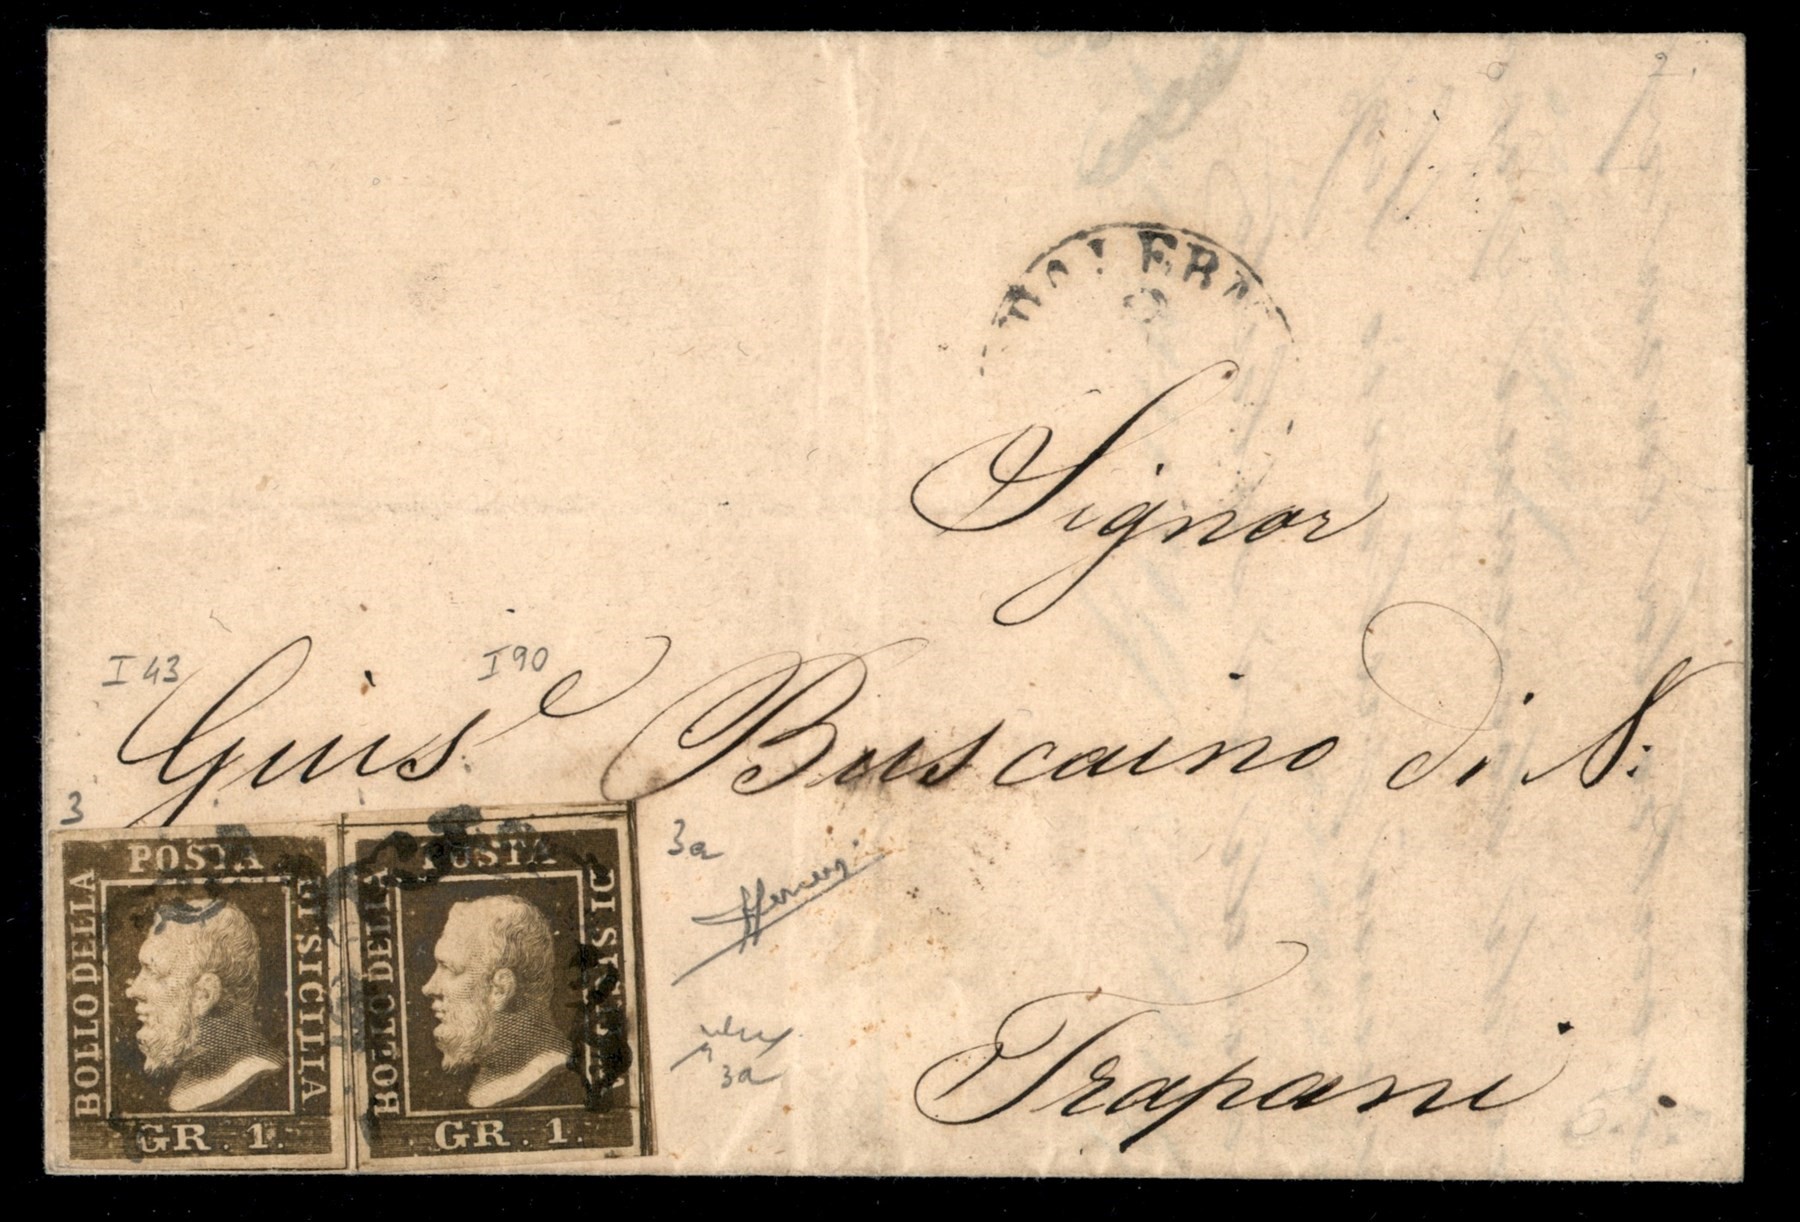 PALERM
Signor
I 43 I 90
Gius.e Buscaino di N:
3
POSTA
BOLLO DELLA
DI SICILIA
GR. 1.
POSTA
BOLLO DELLA
DI SICILIA
GR. 1.
3a
3a
Trapani.